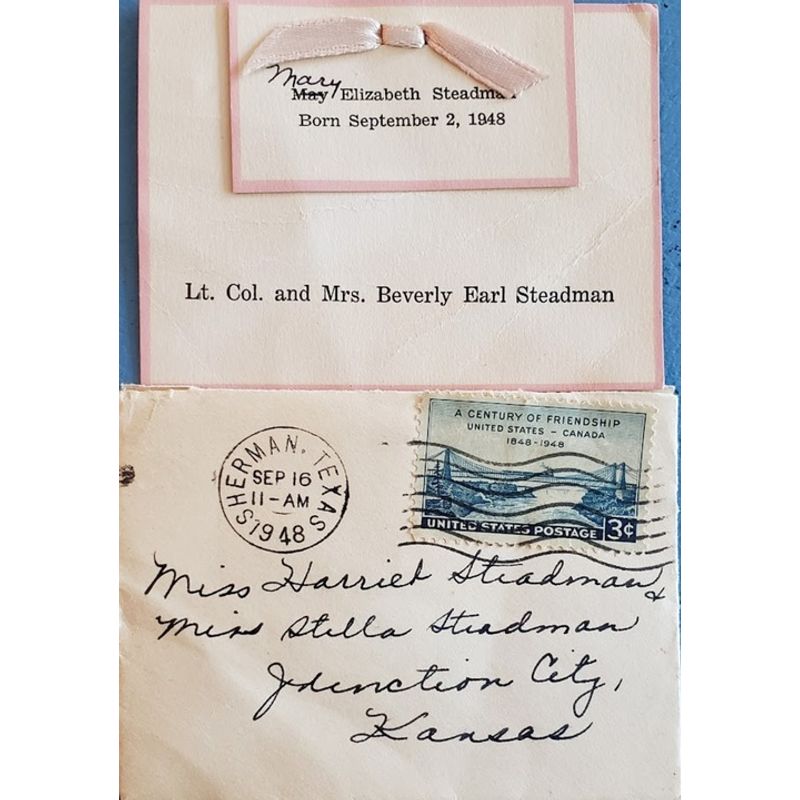 Mary
May Elizabeth Steadman
Born September 2, 1948
Lt. Col. and Mrs. Beverly Earl Steadman
A CENTURY OF FRIENDSHIP
UNITED STATES - CANADA
1848-1948
UNITED STATES POSTAGE 3¢
SHERMAN, TEXAS
SEP 16
11-AM
1948
Miss Harriet Steadman &
Miss Stella Steadman
Junction City,
Kansas